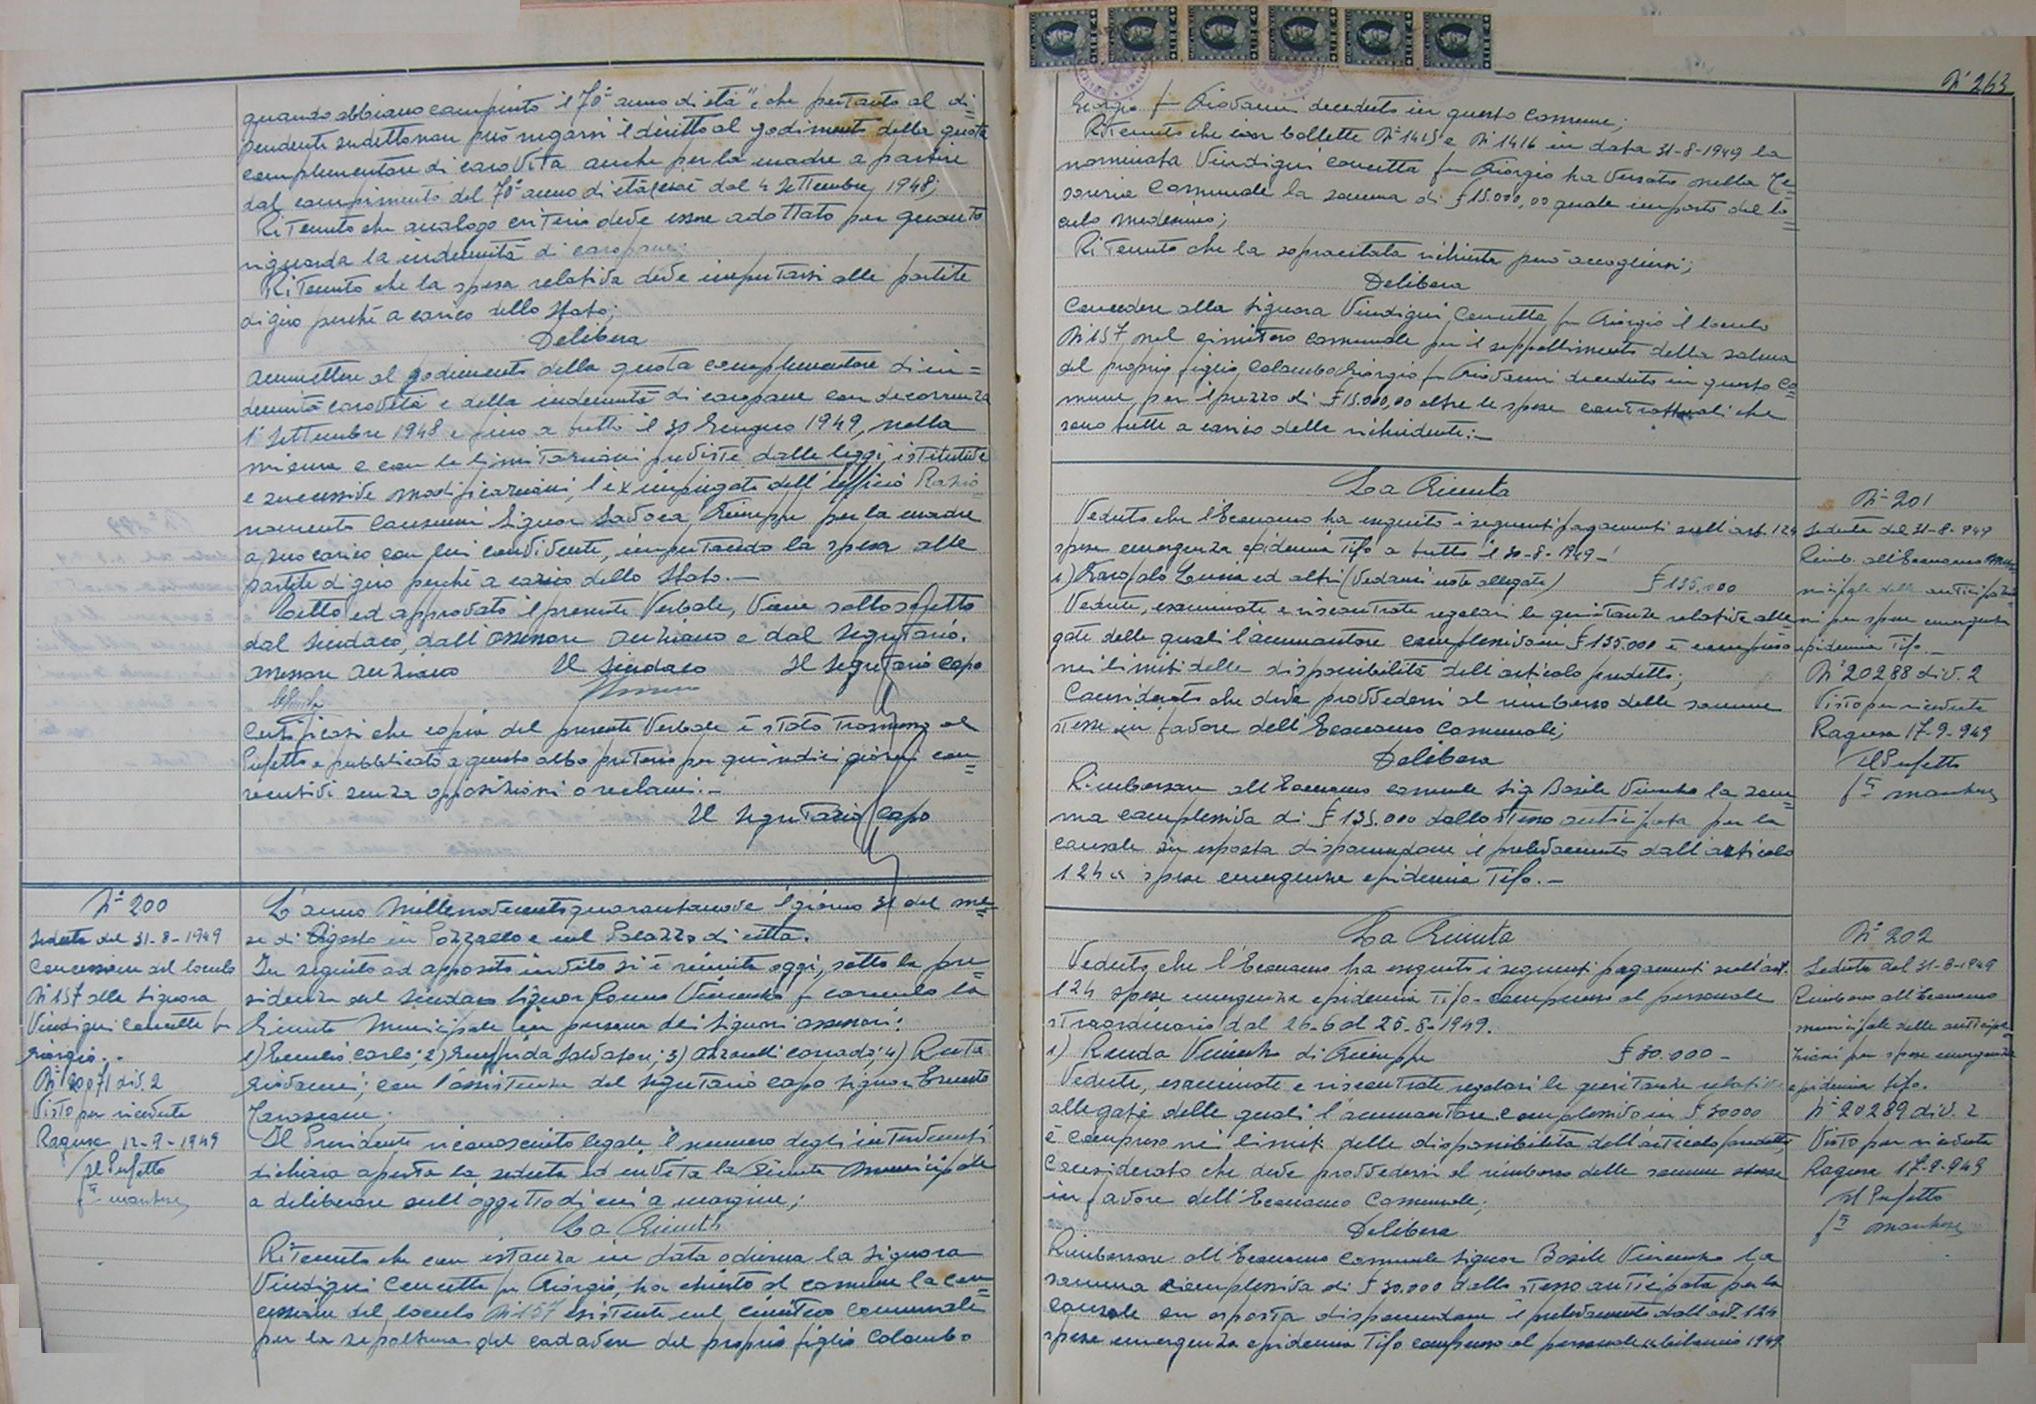 quando abbiano compiuto il 70° anno di età", che pertanto al di=
pendente sudetto non può negarsi il diritto al godimento della quota
complementare di caro vita anche per la madre a partire
dal compimento del 70° anno di età, cioè dal 4 Settembre 1948;
Ritenuto che analogo criterio deve essere adottato per quanto
riguarda la indennità di caropane;
Ritenuto che la spesa relativa deve imputarsi alle partite
di giro perché a carico dello Stato;
Delibera
Ammettere al godimento della quota complementare di in=
dennità carovita e della indennità di caropane con decorrenza
1° Settembre 1948 e fino a tutto il 30 Giugno 1949, nella
misura e con le limitazioni previste dalle leggi istitutive
e successive modificazioni, l'ex impiegato dell'ufficio Razio=
namento Consumi Signor Giuseppe per la madre
a suo carico con lui convivente, imputando la spesa alle
partite di giro perché a carico dello Stato.—
Letto ed approvato il presente Verbale, viene sottoscritto
dal Sindaco, dall'assessore anziano e dal Segretario.
Assessore Anziano Il Sindaco Il Segretario Capo
Certificasi che copia del presente Verbale è stato trasmesso al
Prefetto e pubblicato a questo albo pretorio per quindici giorni con=
secutivi senza opposizioni o reclami.—
Il Segretario Capo
N° 200
Seduta del 31-8-1949
Concessione del loculo
N° 157 alla Signora
Vindigni Concetta fu
Giorgio.-
N° 20971 div. 2
Visto per ricevuta
Ragusa, 12-9-1949
Il Prefetto
L'anno Millenovecentoquarantanove il giorno 31 del me=
se di Agosto in Pozzallo e nel Palazzo di città.
In seguito ad apposito invito si è riunita oggi, sotto la pre=
sidenza del Sindaco Signor Vincenzo fu Carmelo la
Giunta Municipale in persona dei Signori assessori:
1) Carlo; 2) Giuffrida Salvatore; 3) Azzarelli Corrado; 4) Ruta
Giovanni; con l'assistenza del Segretario capo Signor Ernesto
Il Presidente riconosciuto legale il numero degli intervenuti
dichiara aperta la seduta ed invita la Giunta Municipale
a deliberare sull'oggetto di cui a margine;
La Giunta
Ritenuto che con istanza in data odierna la Signora
Vindigni Concetta fu Giorgio, ha chiesto al comune la con=
cessione del loculo N° 157 esistente nel cimitero comunale
per la sepoltura del cadavere del proprio figlio Colombo
N° 263
Giorgio fu Giovanni deceduto in questo Comune;
Ritenuto che con bollette N° 1415 e N° 1416 in data 31-8-1949 la
nominata Vindigni Concetta fu Giorgio ha versato nella Te=
soreria Comunale la somma di £ 15.000,00 quale importo del lo=
culo medesimo;
Ritenuto che la sopracitata richiesta può accogliersi;
Delibera
Concedere alla Signora Vindigni Concetta fu Giorgio il loculo
N° 157 nel cimitero comunale per il seppellimento della salma
del proprio figlio Colombo Giorgio fu Giovanni deceduto in questo Co=
mune, per il prezzo di £ 15.000,00 oltre le spese contrattuali che
sono tutte a carico della richiedente;—
La Giunta
Veduto che l'Economo ha eseguito i seguenti pagamenti sull'art. 124
spese emergenza epidemia Tifo a tutto il 30-8-1949-!
1) Garofalo Lucia ed altri (vedansi note allegate) £ 135.000
Vedute, esaminate e riscontrate regolari le quietanze relative alle=
gate delle quali l'ammontare complessivo in £ 135.000 è compreso
nei limiti delle disponibilità dell'articolo predetto;
Considerato che deve provvedersi al rimborso delle somme
stesse in favore dell'Economo Comunale;
Delibera
Rimborsare all'Economo comunale Sig. Basile Vincenzo la som=
ma complessiva di £ 135.000 dallo stesso anticipata per la
causale su esposta disponendone il prelevamento dall'articolo
124 " spese emergenza epidemia Tifo.—
N° 201
Seduta del 31-8-949
Rimb. all'Economo Mu=
nicipale delle anticipazio=
ni per spese emergenza
epidemia Tifo.—
N° 20288 div. 2
Visto per ricevuta
Ragusa 17-9-949
Il Prefetto
La Giunta
Veduto che l'Economo ha eseguito i seguenti pagamenti sull'art.
124 spese emergenza epidemia Tifo - compenso al personale
straordinario dal 26-6 al 25-8-1949.
1) Renda Vincenzo di Giuseppe £ 30.000—
Vedute, esaminate e riscontrate regolari le quietanze relative
allegate delle quali l'ammontare complessivo in £ 30000
è compreso nei limiti delle disponibilità dell'articolo predetto;
Considerato che deve provvedersi al rimborso delle somme stesse
in favore dell'Economo Comunale;
Delibera
Rimborsare all'Economo Comunale Signor Basile Vincenzo la
somma complessiva di £ 30.000 dallo stesso anticipata per la
causale su esposta disponendone il prelevamento dall'art. 124
spese emergenza epidemia Tifo compenso al personale " bilancio 1949
N° 202
Seduta del 31-8-1949
Rimborso all'Economo
municipale delle anticipa=
zioni per spese emergenza
epidemia tifo.
N° 20289 div. 2
Visto per ricevuta
Ragusa 17-9-949
Il Prefetto